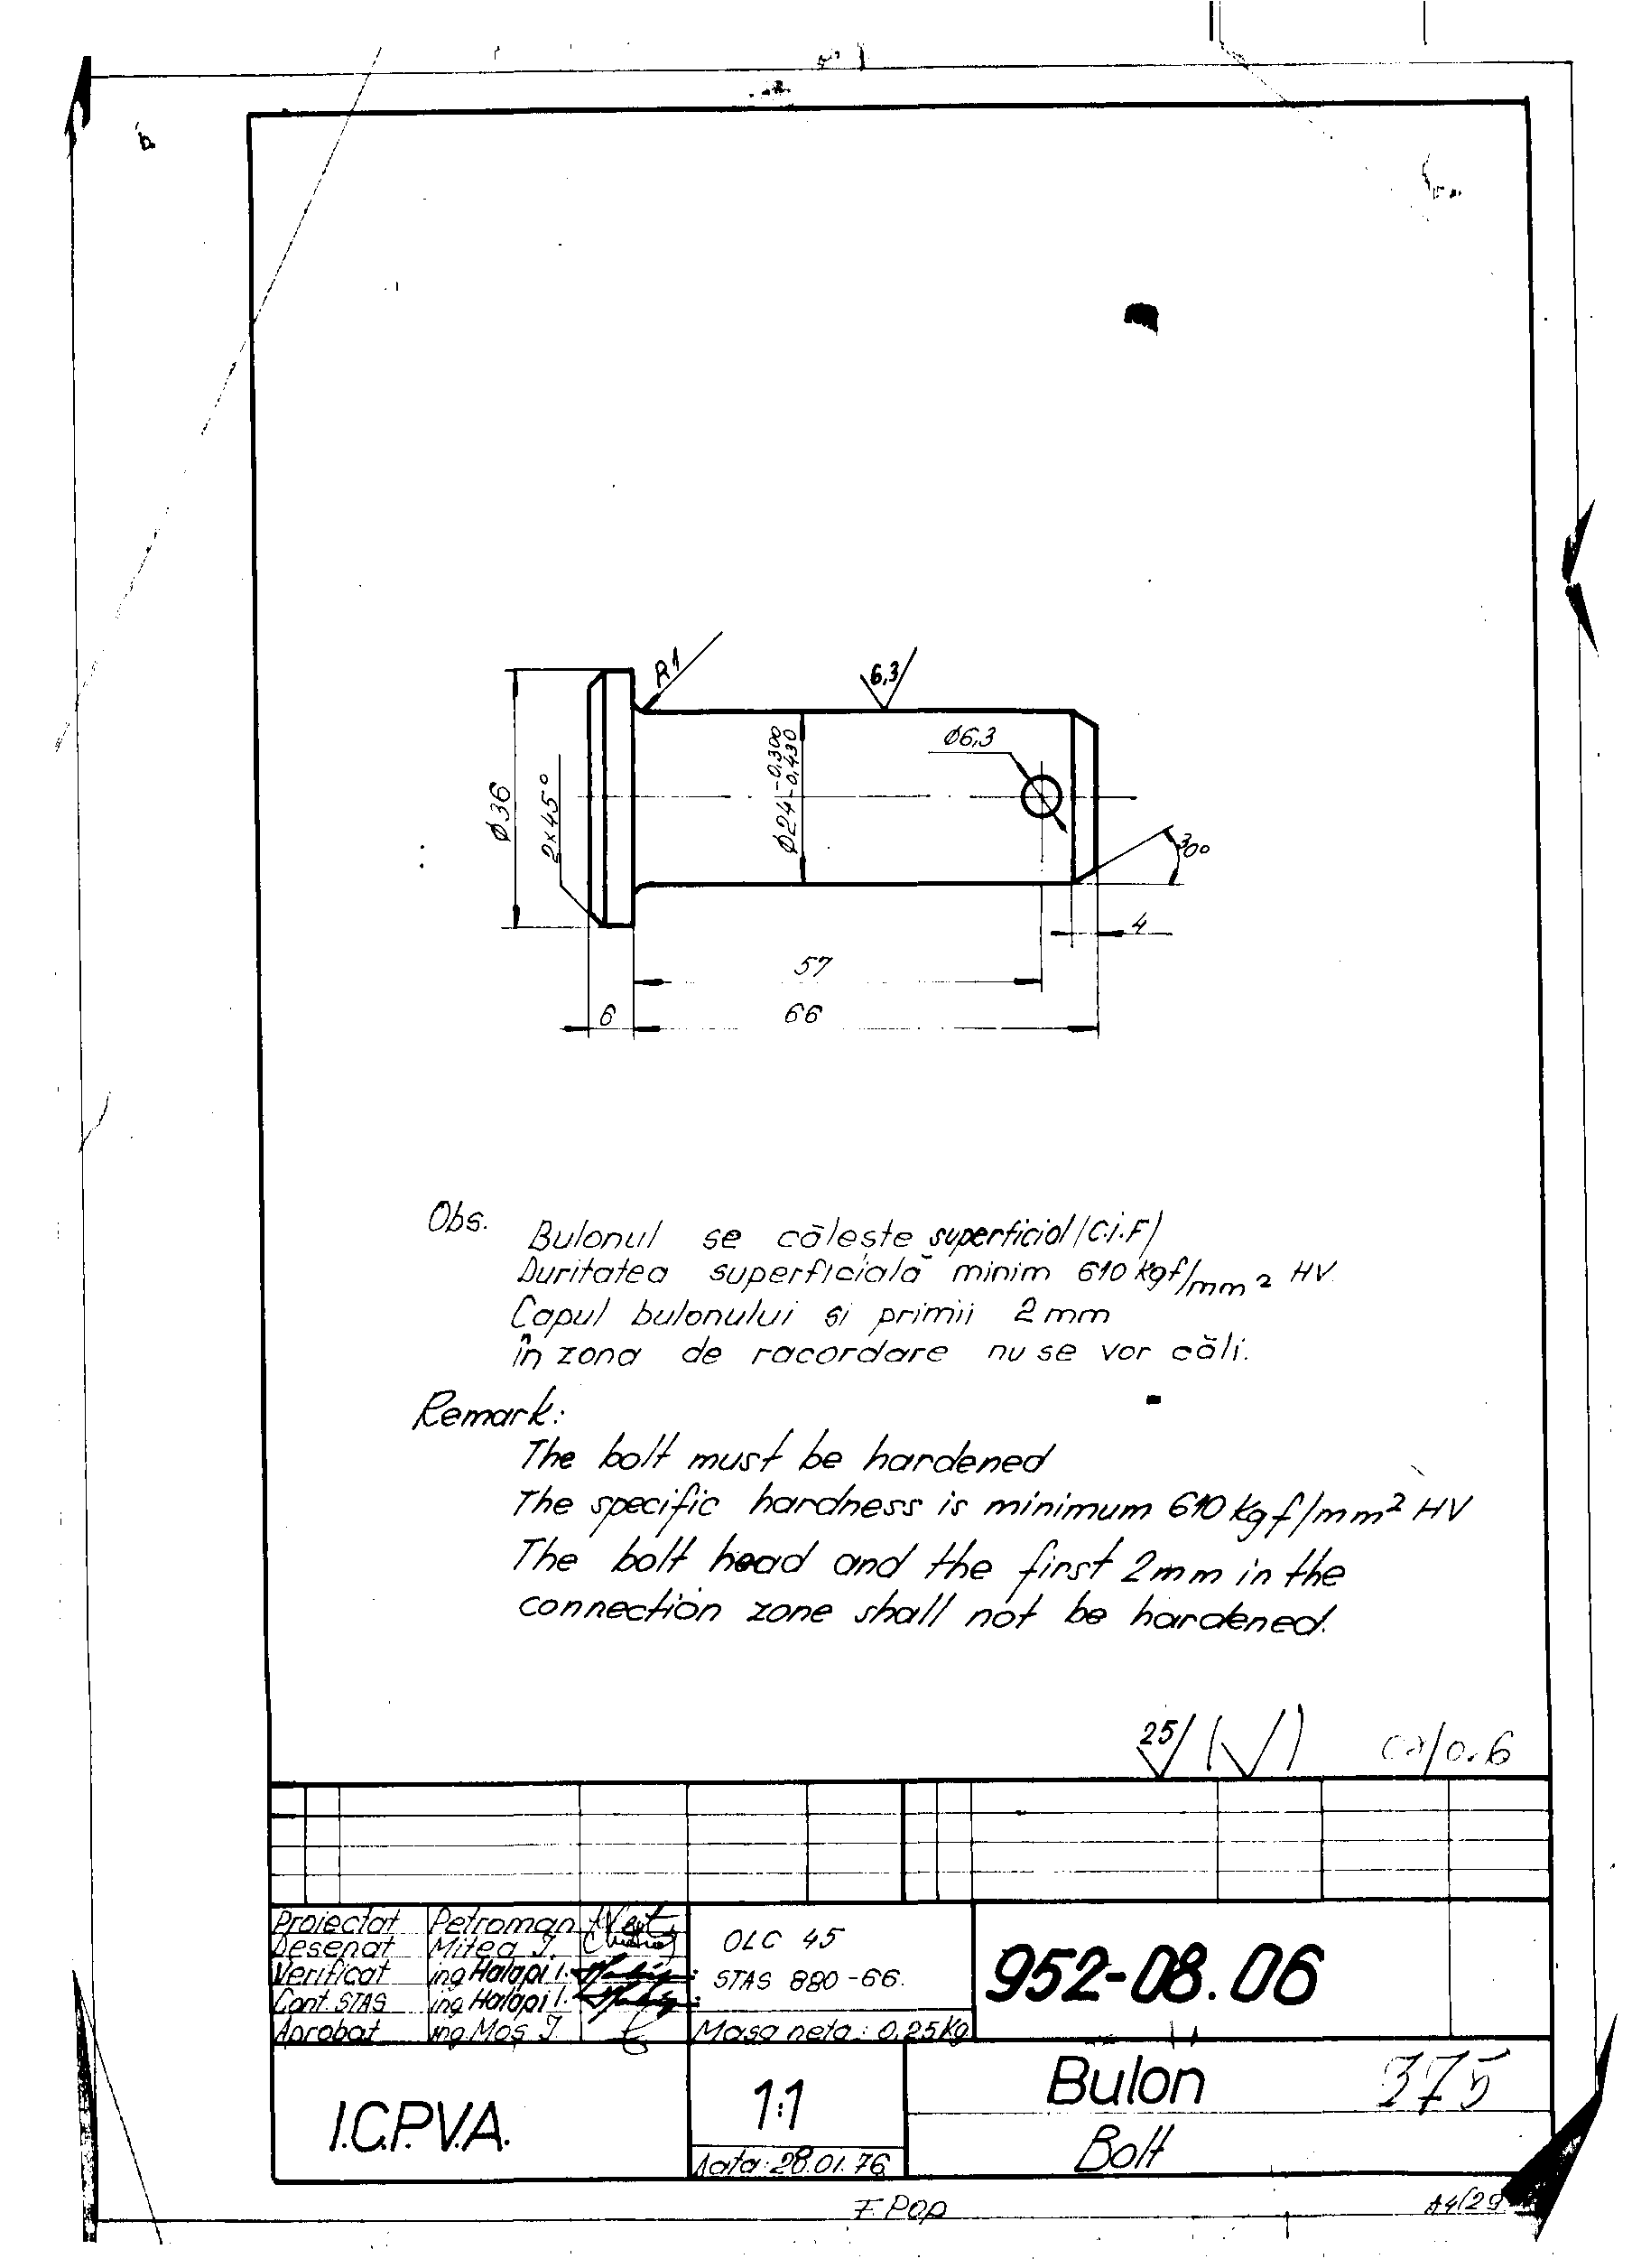 R1
6,3
Ø6,3
Ø36
2×45°
Ø24 -0,300 -0,430
30°
4
57
6
66
Obs. Bulonul se căleşte superficial (C.i.F)
Duritatea superficială minim 610 kgf/mm² HV
Capul bulonului si primii 2 mm
în zona de racordare nu se vor căli.
Remark:
The bolt must be hardened
The specific hardness is minimum 610 kgf/mm² HV
The bolt head and the first 2mm in the
connection zone shall not be hardened.
25
Proiectat Petroman
Desenat Mitea I.
Verificat ing Halapi I.
Cont. STAS ing Halapi I.
Aprobat ing Moş I.
OLC 45
STAS 880-66.
Masa neta: 0,25 Kg
952-08.06
I.C.P.V.A.
1:1
Data: 28.01.76
Bulon 375
Bolt
F. Pop